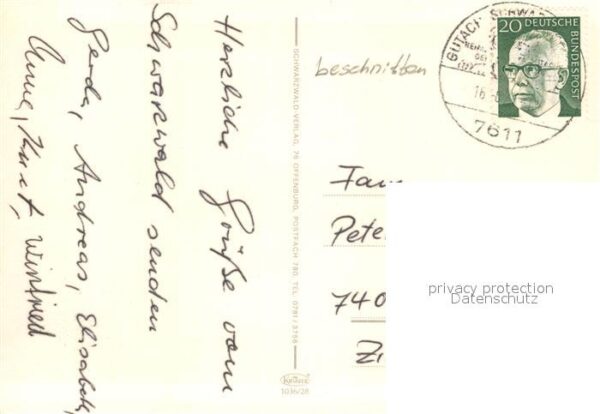 Herzliche Grüße vom
Schwarzwald senden
Gerda, Andreas, Elisabeth,
Anne, Kurt, Winfried
SCHWARZWALD-VERLAG, 76 OFFENBURG, POSTFACH 780, TEL. 0781/3756
Krüger
1036/28
beschnitten
GUTACH SCHWARZW
16
7611
20 DEUTSCHE
BUNDESPOST
Fam
Pete
740
Zi
privacy protection
Datenschutz